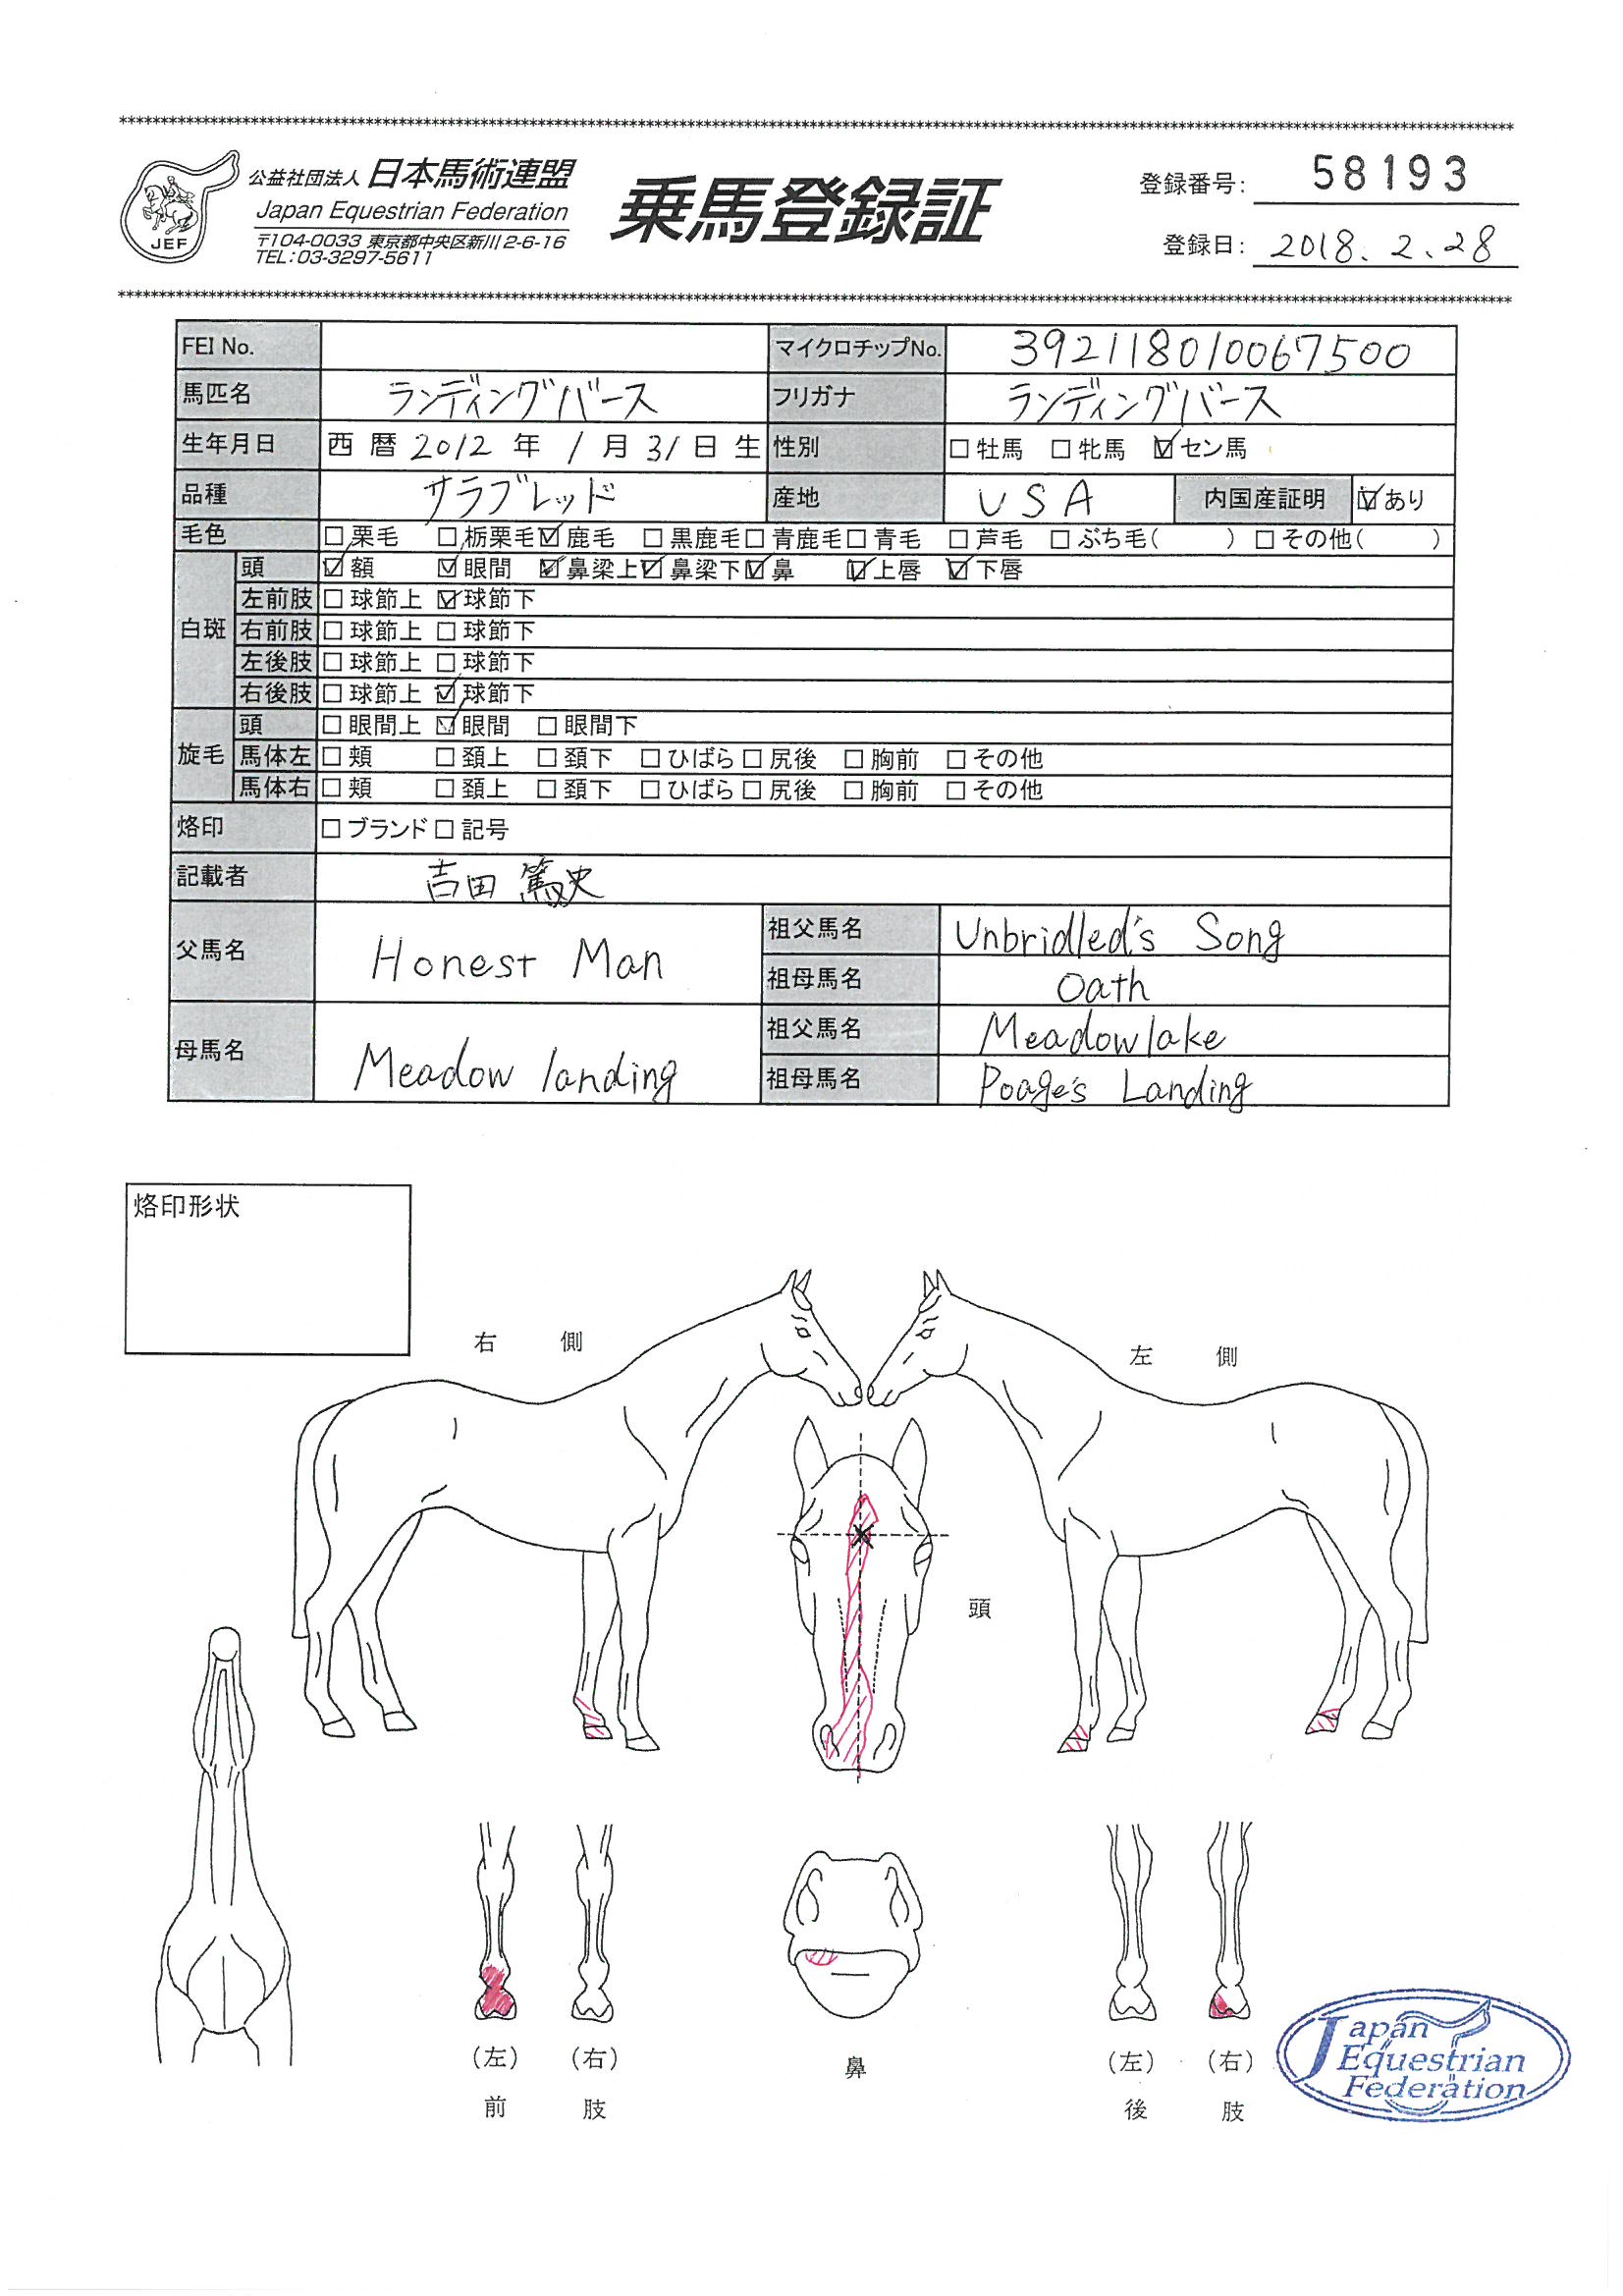 ****************************************************************
公益社団法人 日本馬術連盟
Japan Equestrian Federation
〒104-0033 東京都中央区新川2-6-16
TEL:03-3297-5611
JEF
乗馬登録証
登録番号: 58193
登録日: 2018.2.28
****************************************************************
FEI No. マイクロチップNo. 392118010067500
馬匹名 ランディングバース フリガナ ランディングバース
生年月日 西暦2012年1月31日生 性別 □牡馬 □牝馬 ☑セン馬
品種 サラブレッド 産地 USA 内国産証明 ☑あり
毛色 □栗毛 □栃栗毛 ☑鹿毛 □黒鹿毛 □青鹿毛 □青毛 □芦毛 □ぶち毛( ) □その他( )
白斑 頭 ☑額 ☑眼間 ☑鼻梁上 ☑鼻梁下 ☑鼻 ☑上唇 ☑下唇
左前肢 □球節上 ☑球節下
右前肢 □球節上 □球節下
左後肢 □球節上 □球節下
右後肢 □球節上 ☑球節下
旋毛 頭 □眼間上 ☑眼間 □眼間下
馬体左 □頬 □頚上 □頚下 □ひばら □尻後 □胸前 □その他
馬体右 □頬 □頚上 □頚下 □ひばら □尻後 □胸前 □その他
烙印 □ブランド □記号
記載者 吉田 篤史
父馬名 Honest Man 祖父馬名 Unbridled's Song
祖母馬名 Oath
母馬名 Meadow landing 祖父馬名 Meadowlake
祖母馬名 Poage's Landing
烙印形状
右側
左側
頭
(左) (右)
前肢
鼻
(左) (右)
後肢
Japan
Equestrian
Federation